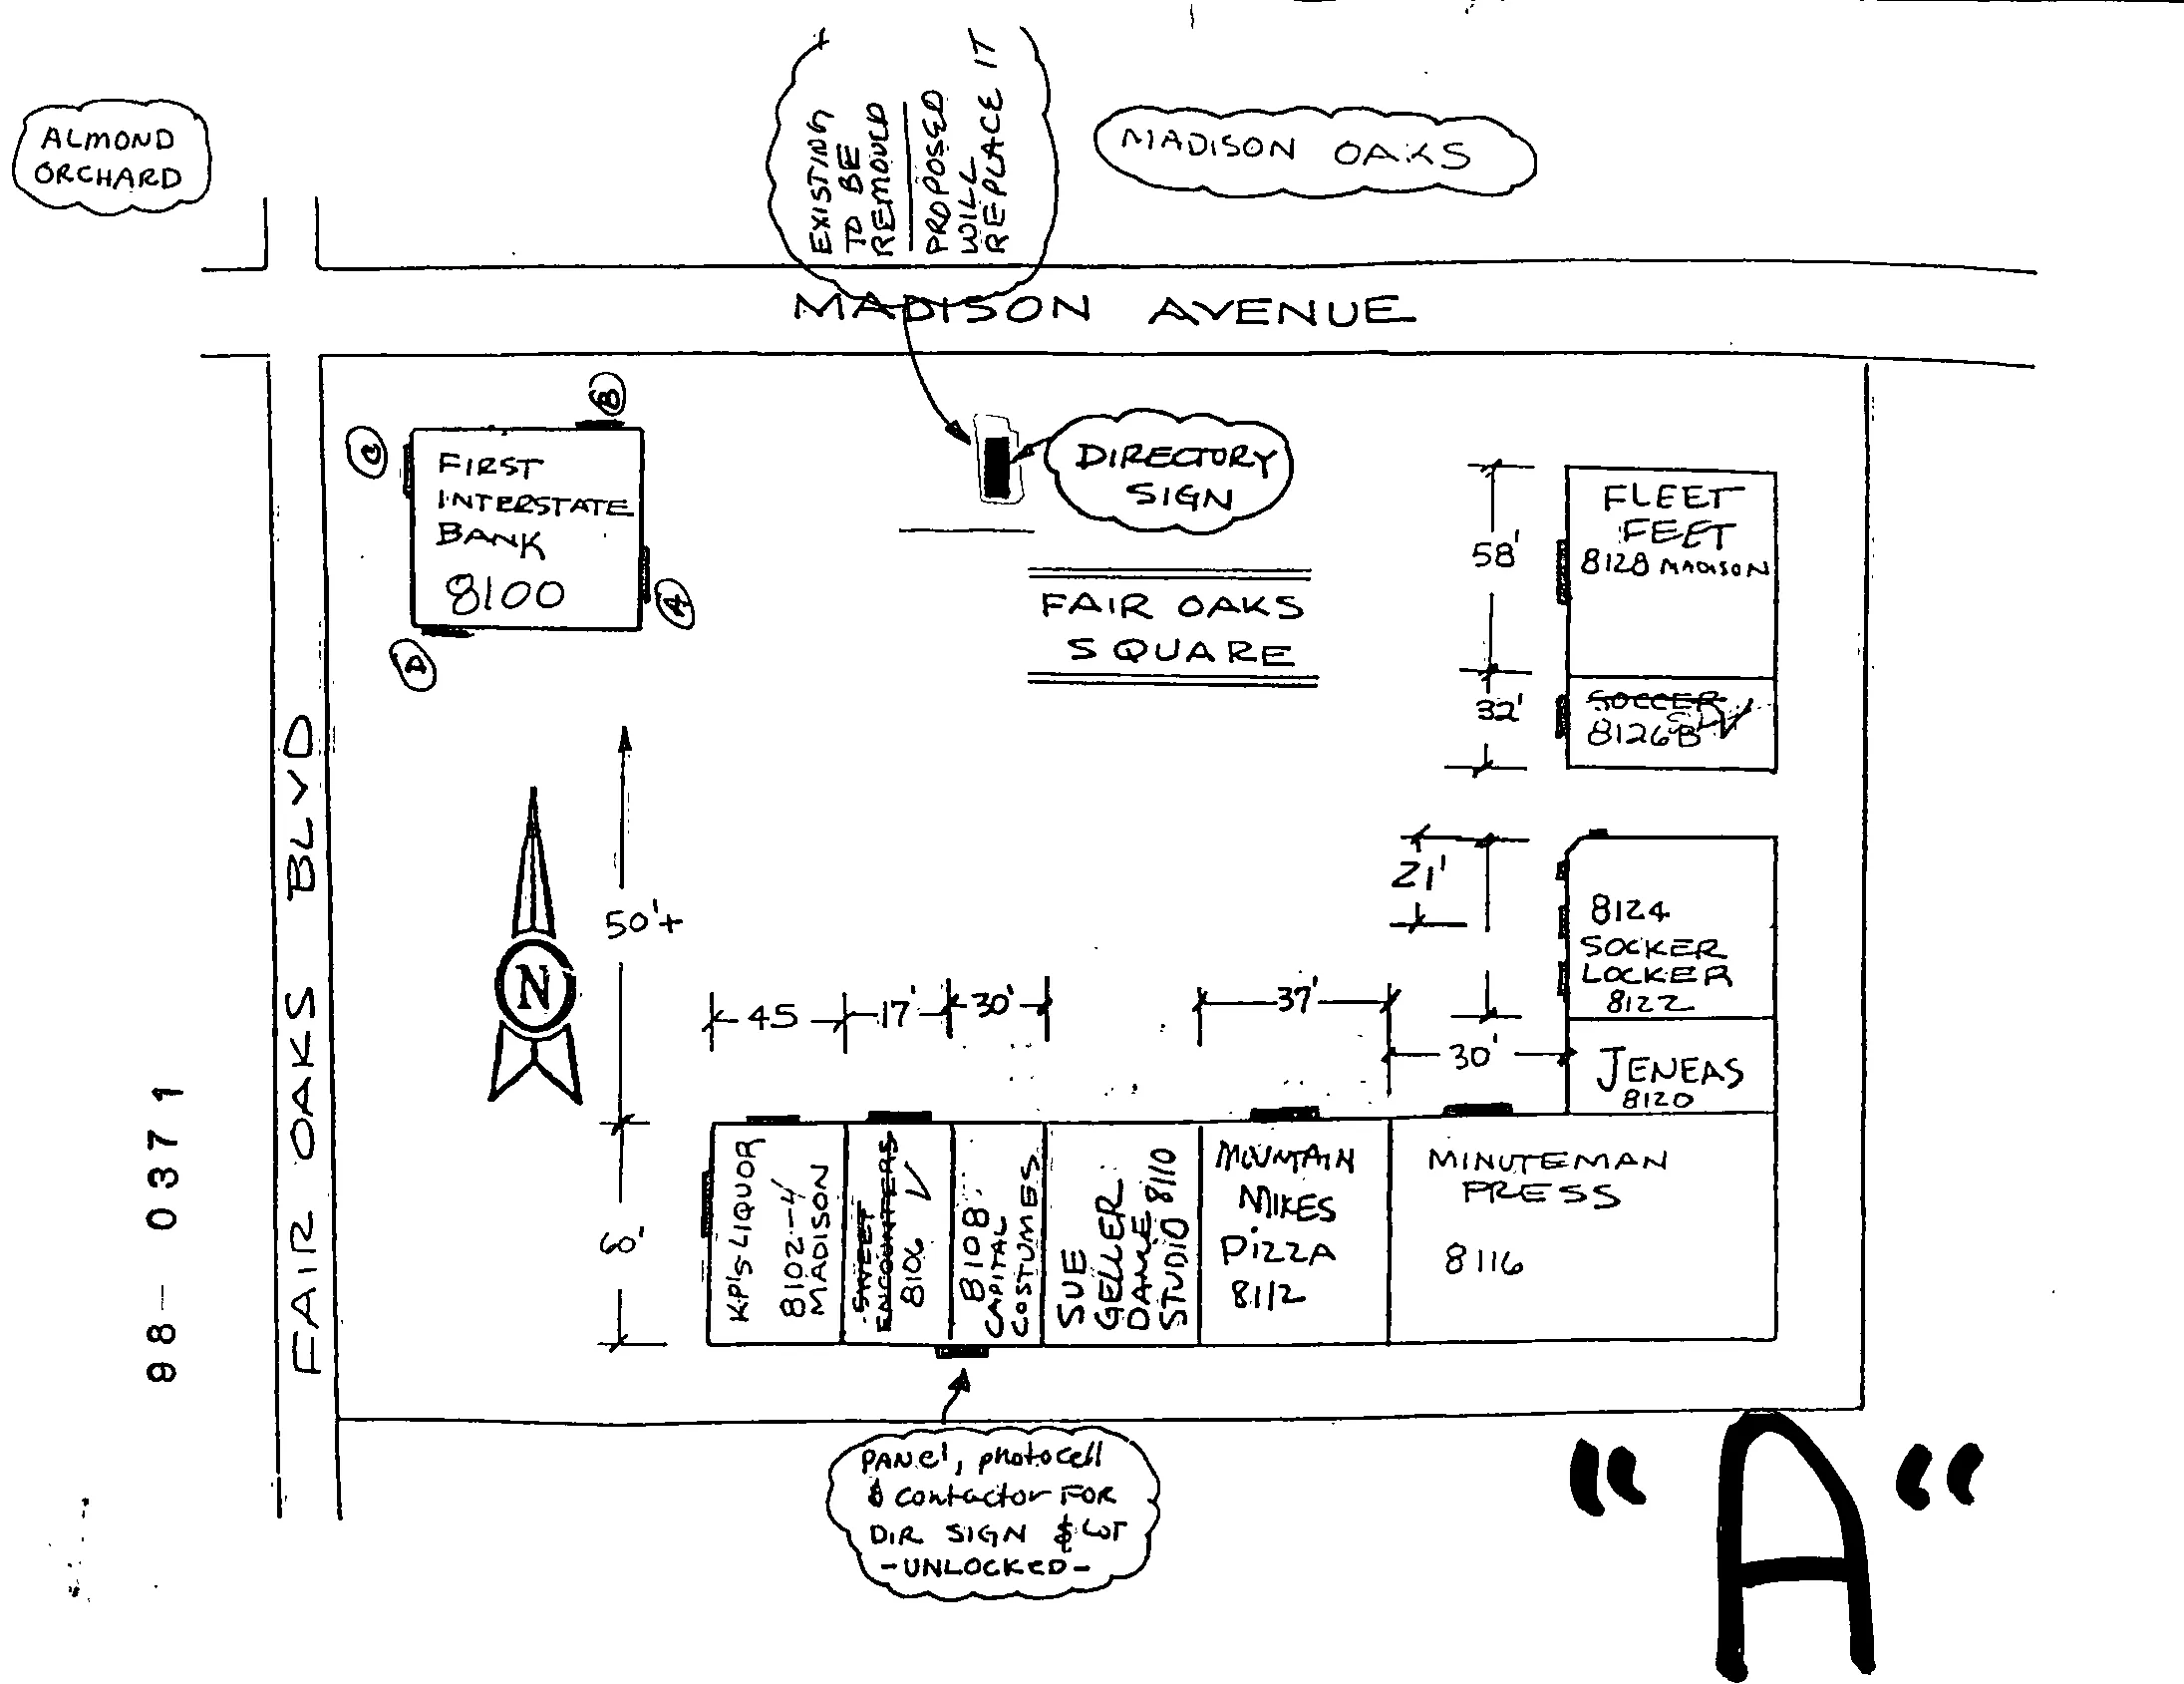 ALMOND
ORCHARD
EXISTING
TO BE
REMOVED
PROPOSED
WILL
REPLACE IT
MADISON OAKS
MADISON AVENUE
C
B
FIRST
INTERSTATE
BANK
8100
A
D
DIRECTORY
SIGN
FAIR OAKS
SQUARE
58'
FLEET
FEET
8128 MADISON
32'
SOCCER
8126B
21'
8124
SOCKER
LOCKER
8122
JENEAS
8120
FAIR OAKS BLVD
N
50'+
60'
45
17'
30'
37'
30'
KP'S LIQUOR
8102-4
MADISON
SWEET
ENCOUNTERS
8106 V
8108
CAPITAL
COSTUMES
SUE
GELLER
DANCE
STUDIO 8110
MOUNTAIN
MIKES
PIZZA
8112
MINUTEMAN
PRESS
8116
98-0371
PANEL, photocell
& contactor FOR
DIR SIGN & LOT
-UNLOCKED-
"A"